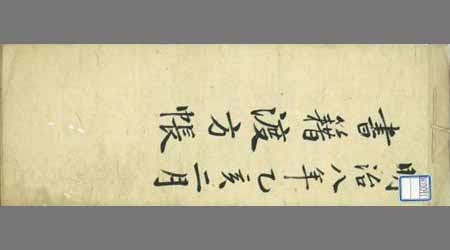 明治八年乙亥二月
書籍渡方帳